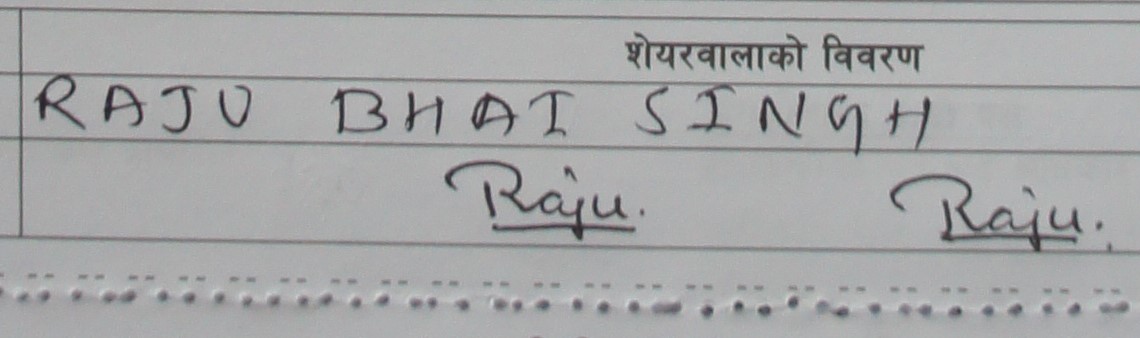 शेयरवालाको विवरण
RAJU BHAI SINGH
Raju. Raju.